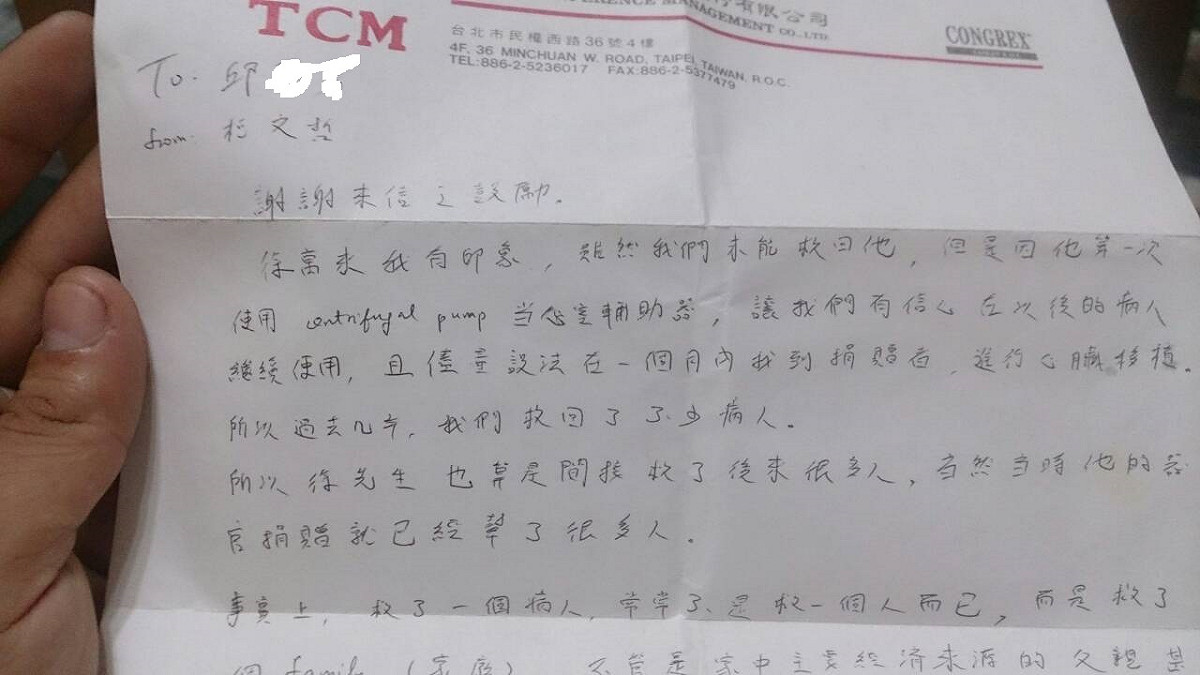 TCM
有限公司
MANAGEMENT CO., LTD.
CONGREX
台北市民權西路36號4樓
4F, 36 MINCHUAN W. ROAD, TAIPEI, TAIWAN, R.O.C.
TEL:886-2-5236017 FAX:886-2-5377479
To. 邱
from. 柯文哲
謝謝來信之鼓勵。
徐萬來我有印象，雖然我們未能救回他，但是因他第一次
使用 centrifugal pump 當心室輔助器，讓我們有信心在以後的病人
繼續使用，且儘量設法在一個月內找到捐贈者，進行心臟移植。
所以過去几年，我們救回了不少病人。
所以徐先生也算是間接救了後來很多人，当然当時他的器
官捐贈就已經幫了很多人。
事實上，救了一個病人，常常不是救一個人而已，而是救了
個 family (家庭) 不管是家中主要經濟來源的父親甚